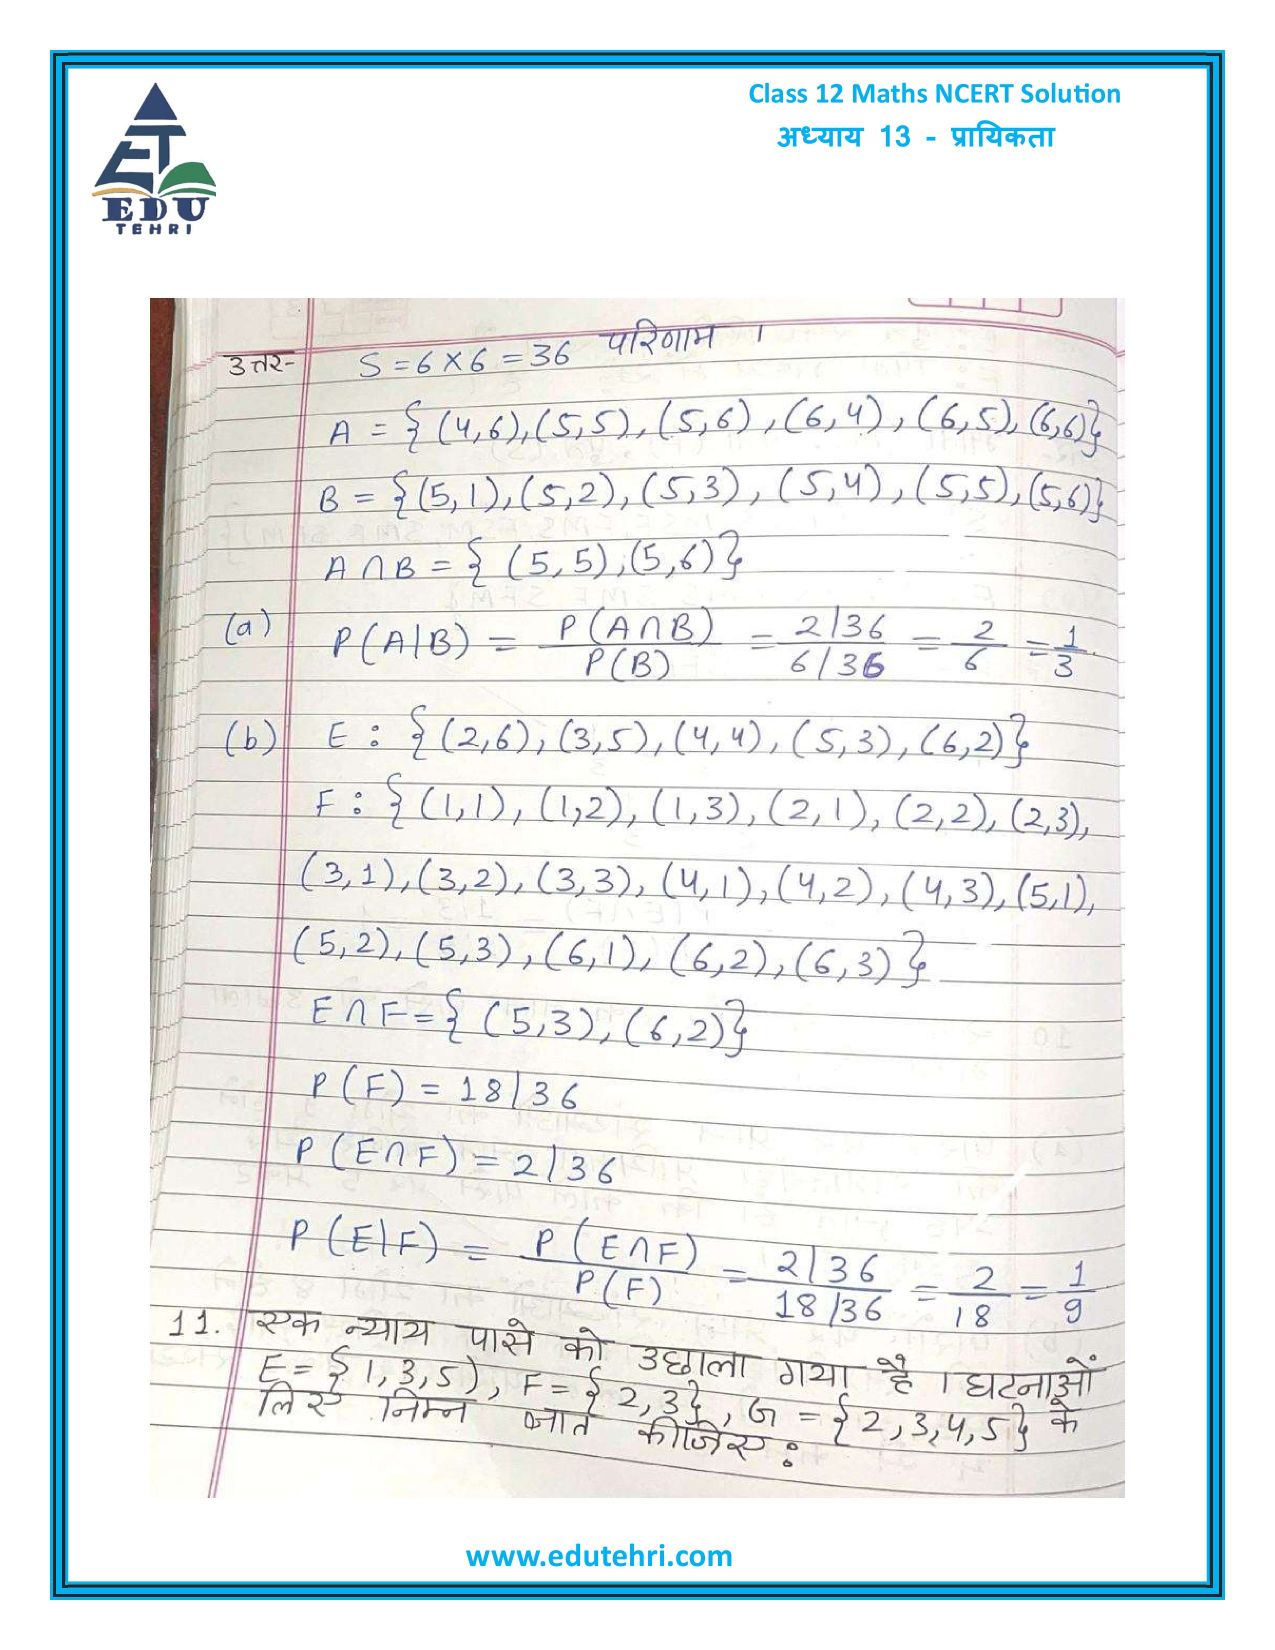 Class 12 Maths NCERT Solution
अध्याय 13 - प्रायिकता
EDU
TEHRI
उत्तर- S = 6 × 6 = 36 परिणाम ।
A = { (4,6), (5,5), (5,6), (6,4), (6,5), (6,6)}
B = {(5,1), (5,2), (5,3), (5,4), (5,5), (5,6)}
A ∩ B = { (5,5), (5,6)}
(a) P(A|B) = P(A∩B)/P(B) = 2/36 / 6/36 = 2/6 = 1/3.
(b) E : {(2,6), (3,5), (4,4), (5,3), (6,2)}
F : {(1,1), (1,2), (1,3), (2,1), (2,2), (2,3),
(3,1), (3,2), (3,3), (4,1), (4,2), (4,3), (5,1),
(5,2), (5,3), (6,1), (6,2), (6,3)}
E∩F = { (5,3), (6,2)}
P(F) = 18/36
P(E∩F) = 2/36
P(E|F) = P(E∩F)/P(F) = 2/36 / 18/36 = 2/18 = 1/9
11. एक न्याय पासे को उछाला गया है । घटनाओं
E = {1,3,5), F = {2,3}, G = {2,3,4,5} के
लिए निम्न ज्ञात कीजिए :
www.edutehri.com